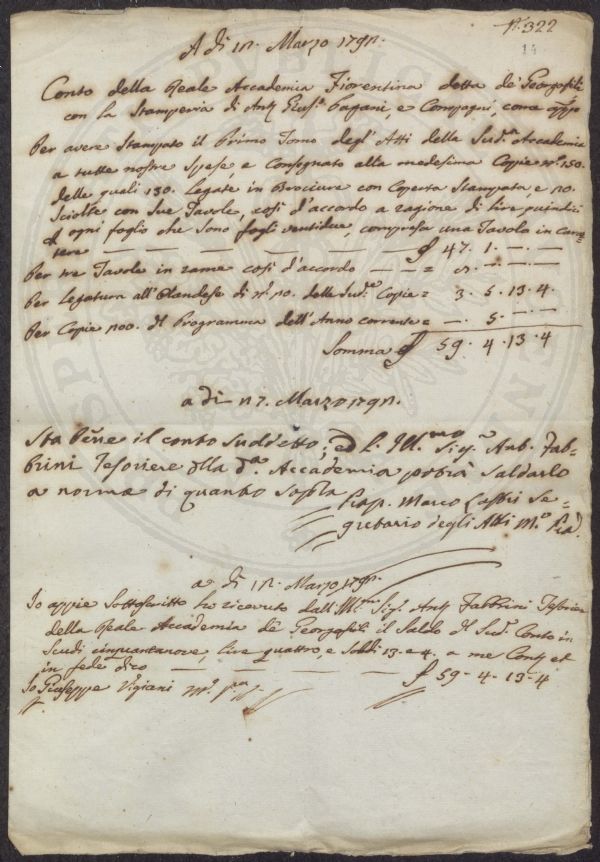 N.° 322
14
A dì 12. Marzo 1792.
Conto della Reale Accademica Fiorentina detta de' Georgofili
con la Stamperia di Ant. Gius.e Pagani, e Compagni, come app.o
Per avere Stampato il Primo Tomo degl'Atti della Sud.a Accademia
a tutte nostre Spese, e Consegnato alla medesima Copie n.° 150.
delle quali 130. Legate in Brociure con Coperta Stampata, e 20.
Sciolte con Sue Tavole, così d'accordo a ragione di lire quindici
il ogni foglio che Sono fogli ventidue, compresa una Tavola in Carat-
tere — — — — 47. 1. — . —
Per tre Tavole in rame così d'accordo — — = — . —
Per Legatura all'Olandese di n.° 20. delle Sud.e Copie = 3. 5. 13. 4.
Per Copie 200. di Programma dell'Anno corrente = — . 5. — . —
Somma 59. 4. 13. 4
a dì 17. Marzo 1792.
Sta bene il conto suddetto; ed l'Ill.mo Sig.r Ant. Fab-
brini Tesoriere della d.a Accademia potrà saldarlo
a norma di quanto sopra
Marco Lastri Se-
gretario degli Atti m.o
a dì 12. Marzo 1792.
Io appiè Sottoscritto ho ricevuto dall'Ill.mo Sig.r Ant. Fabbrini Tesorie
della Reale Accademia de' Georgofili il Saldo di Sud.o Conto in
Scudi cinquantanove, lire quattro, e Soldi 13 = 4. a me Cont. et
in fede dico — — — — 59 - 4 - 13 - 4
Io Giuseppe Vigiani m.o p.a